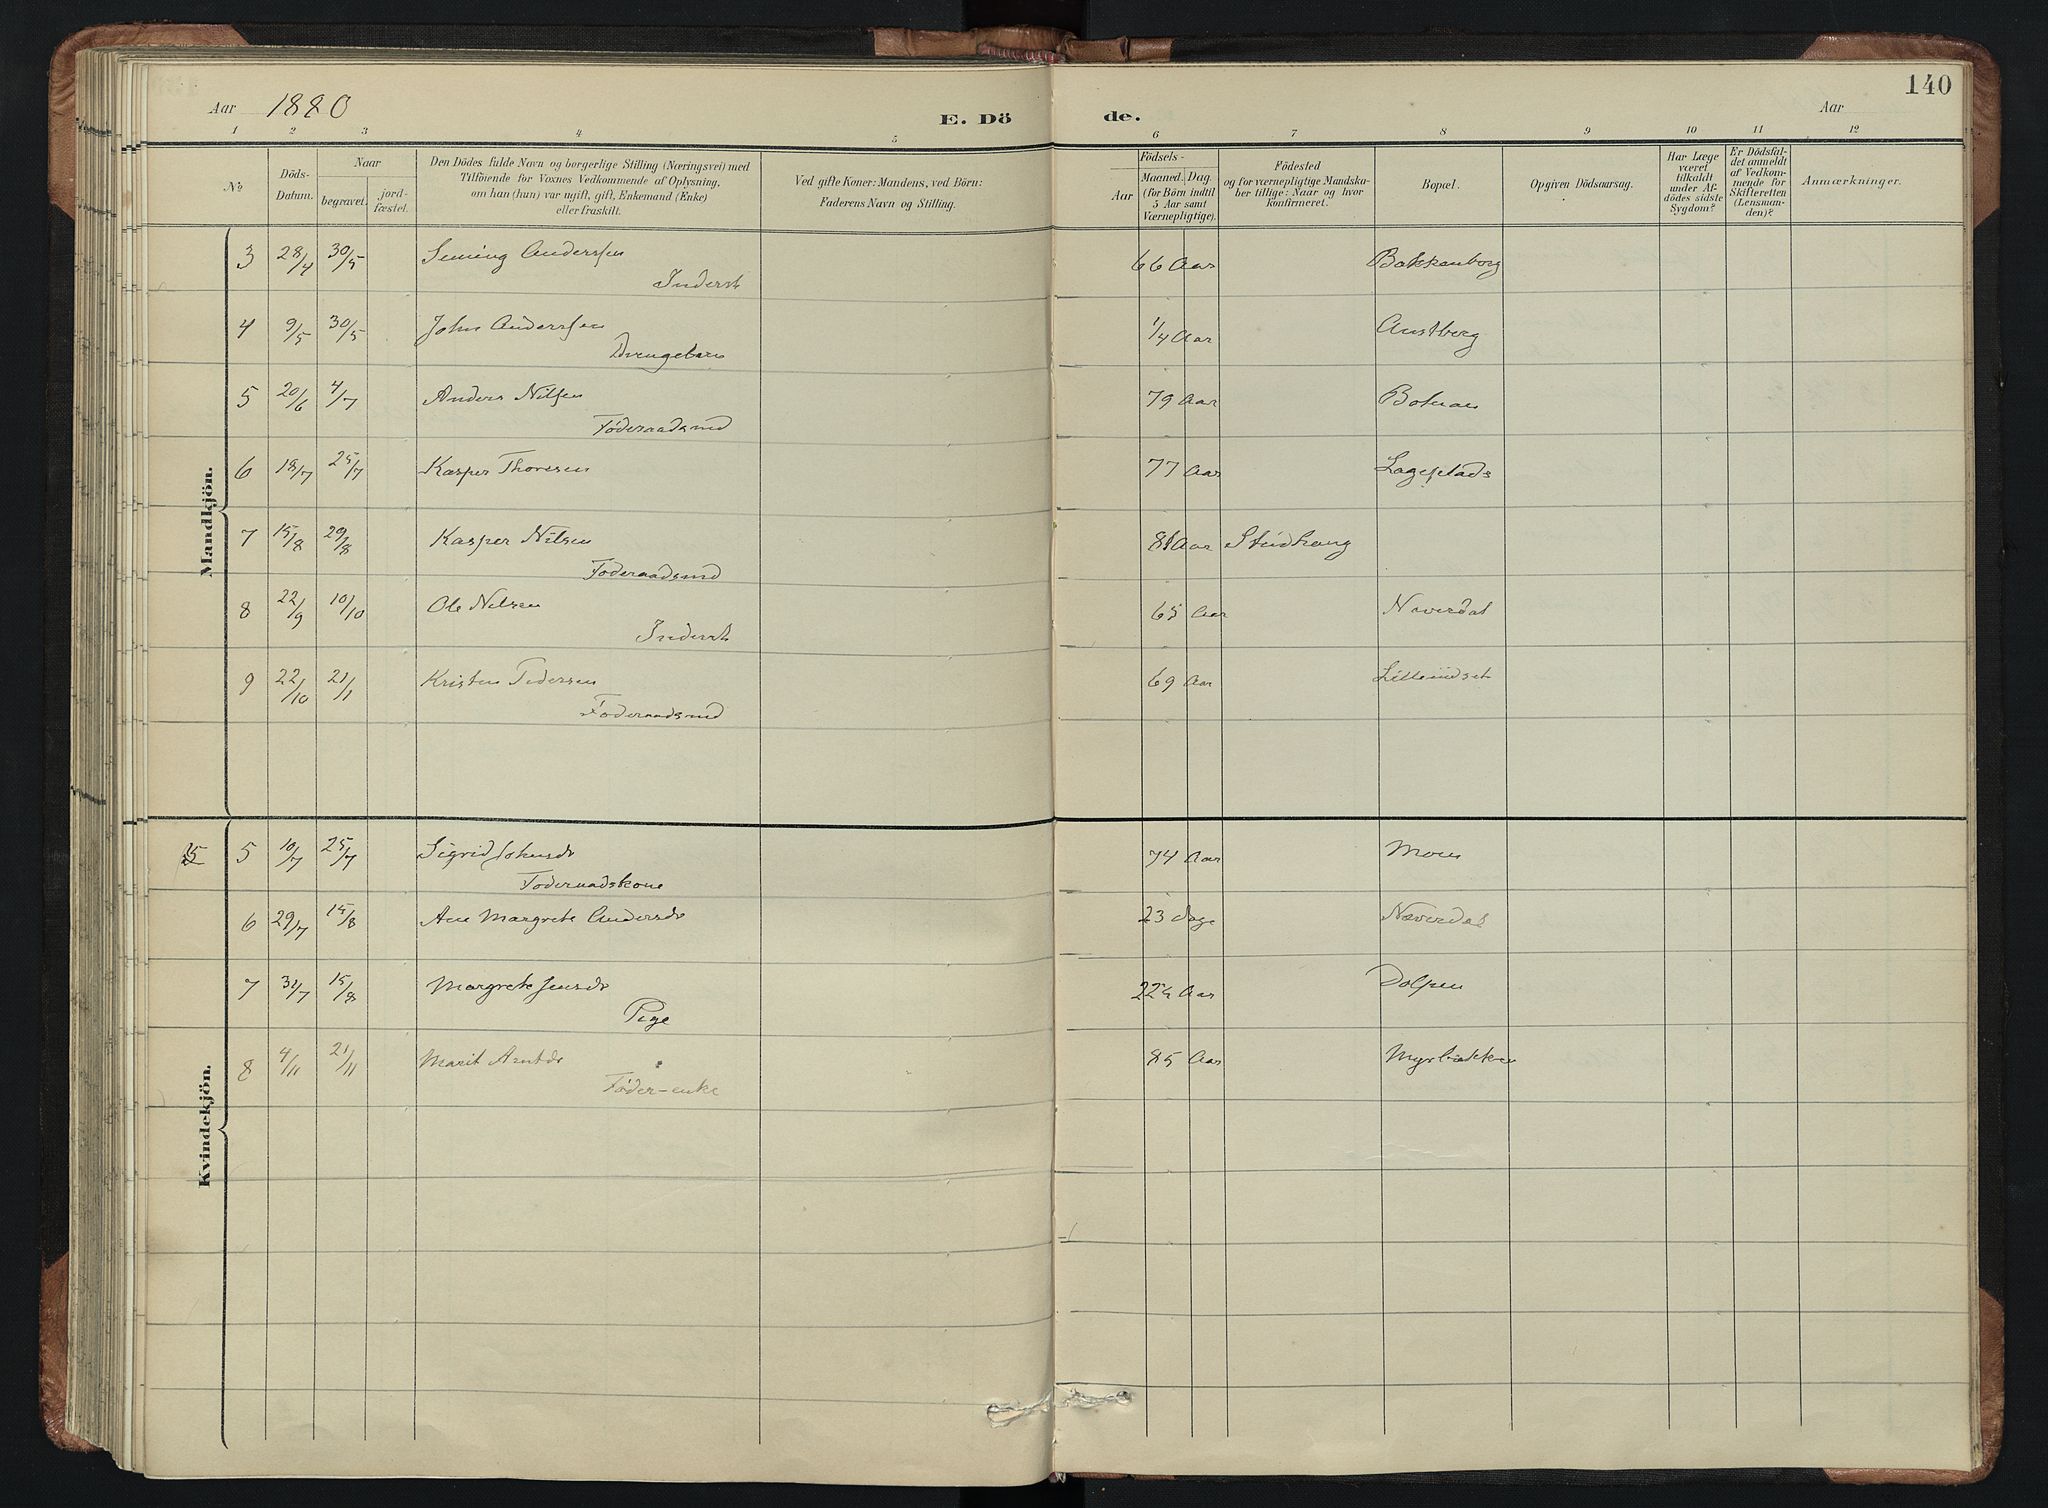 140
Aar 1880 E. Dö de. Aar
1 2 3 4 5 6 7 8 9 10 11 12
No
Döds-Datum.
Naar
begravet.
jord-fæstet.
Den Dödes fulde Navn og borgerlige Stilling (Næringsvei) med
Tilföiende for Voxnes Vedkommende af Oplysning,
om han (hun) var ugift, gift, Enkemand (Enke)
eller fraskilt.
Ved gifte Koner: Mandens, ved Börn:
Faderens Navn og Stilling.
Födsels-
Aar
Maaned. Dag.
(for Börn indtil
5 Aar samt
Værnepligtige).
Födested
og for værnepligtige Mandska-
ber tillige: Naar og hvor
konfirmeret.
Bopæl.
Opgiven Dödsaarsag.
Har Læge
været
tilkaldt
under Af-
dödes sidste
Sygdom?
Er Dödsfal-
det anmeldt
af Vedkom-
mende for
Skifteretten
(Lensman-
den)?
Anmærkninger.
Mandkjön.
3 28/4 30/5 Siming Anderssen 66 Aar Bakkenborg
Inderst
4 9/5 30/5 John Anderssen 1/4 Aar Austberg
Drengebarn
5 20/6 4/7 Anders Nilsen 79 Aar
Föderaadsmd
6 18/7 25/7 Kasper Thoresen 77 Aar
7 15/8 29/8 Kasper Nilsen Aar Stúdhaug
Föderaadsmd
8 22/9 10/10 Ole Nilsen 65 Aar Naverdal
Inderst
9 22/10 21/1 Kristen Pedersen 69 Aar Lilleindset
Föderaadsmd
Kvindekjön.
5 10/7 25/7 Sigrid Johnsdr 74 Aar Moen
Föderaadskone
6 29/7 15/8 Ane Margrete Andersdr 23 dage Næverdal
7 31/7 15/8 Margrete Jensdr Aar Dolpen
Pige
8 4/11 21/11 Marit Arntdr 85 Aar Myrbækken
Föder-enke